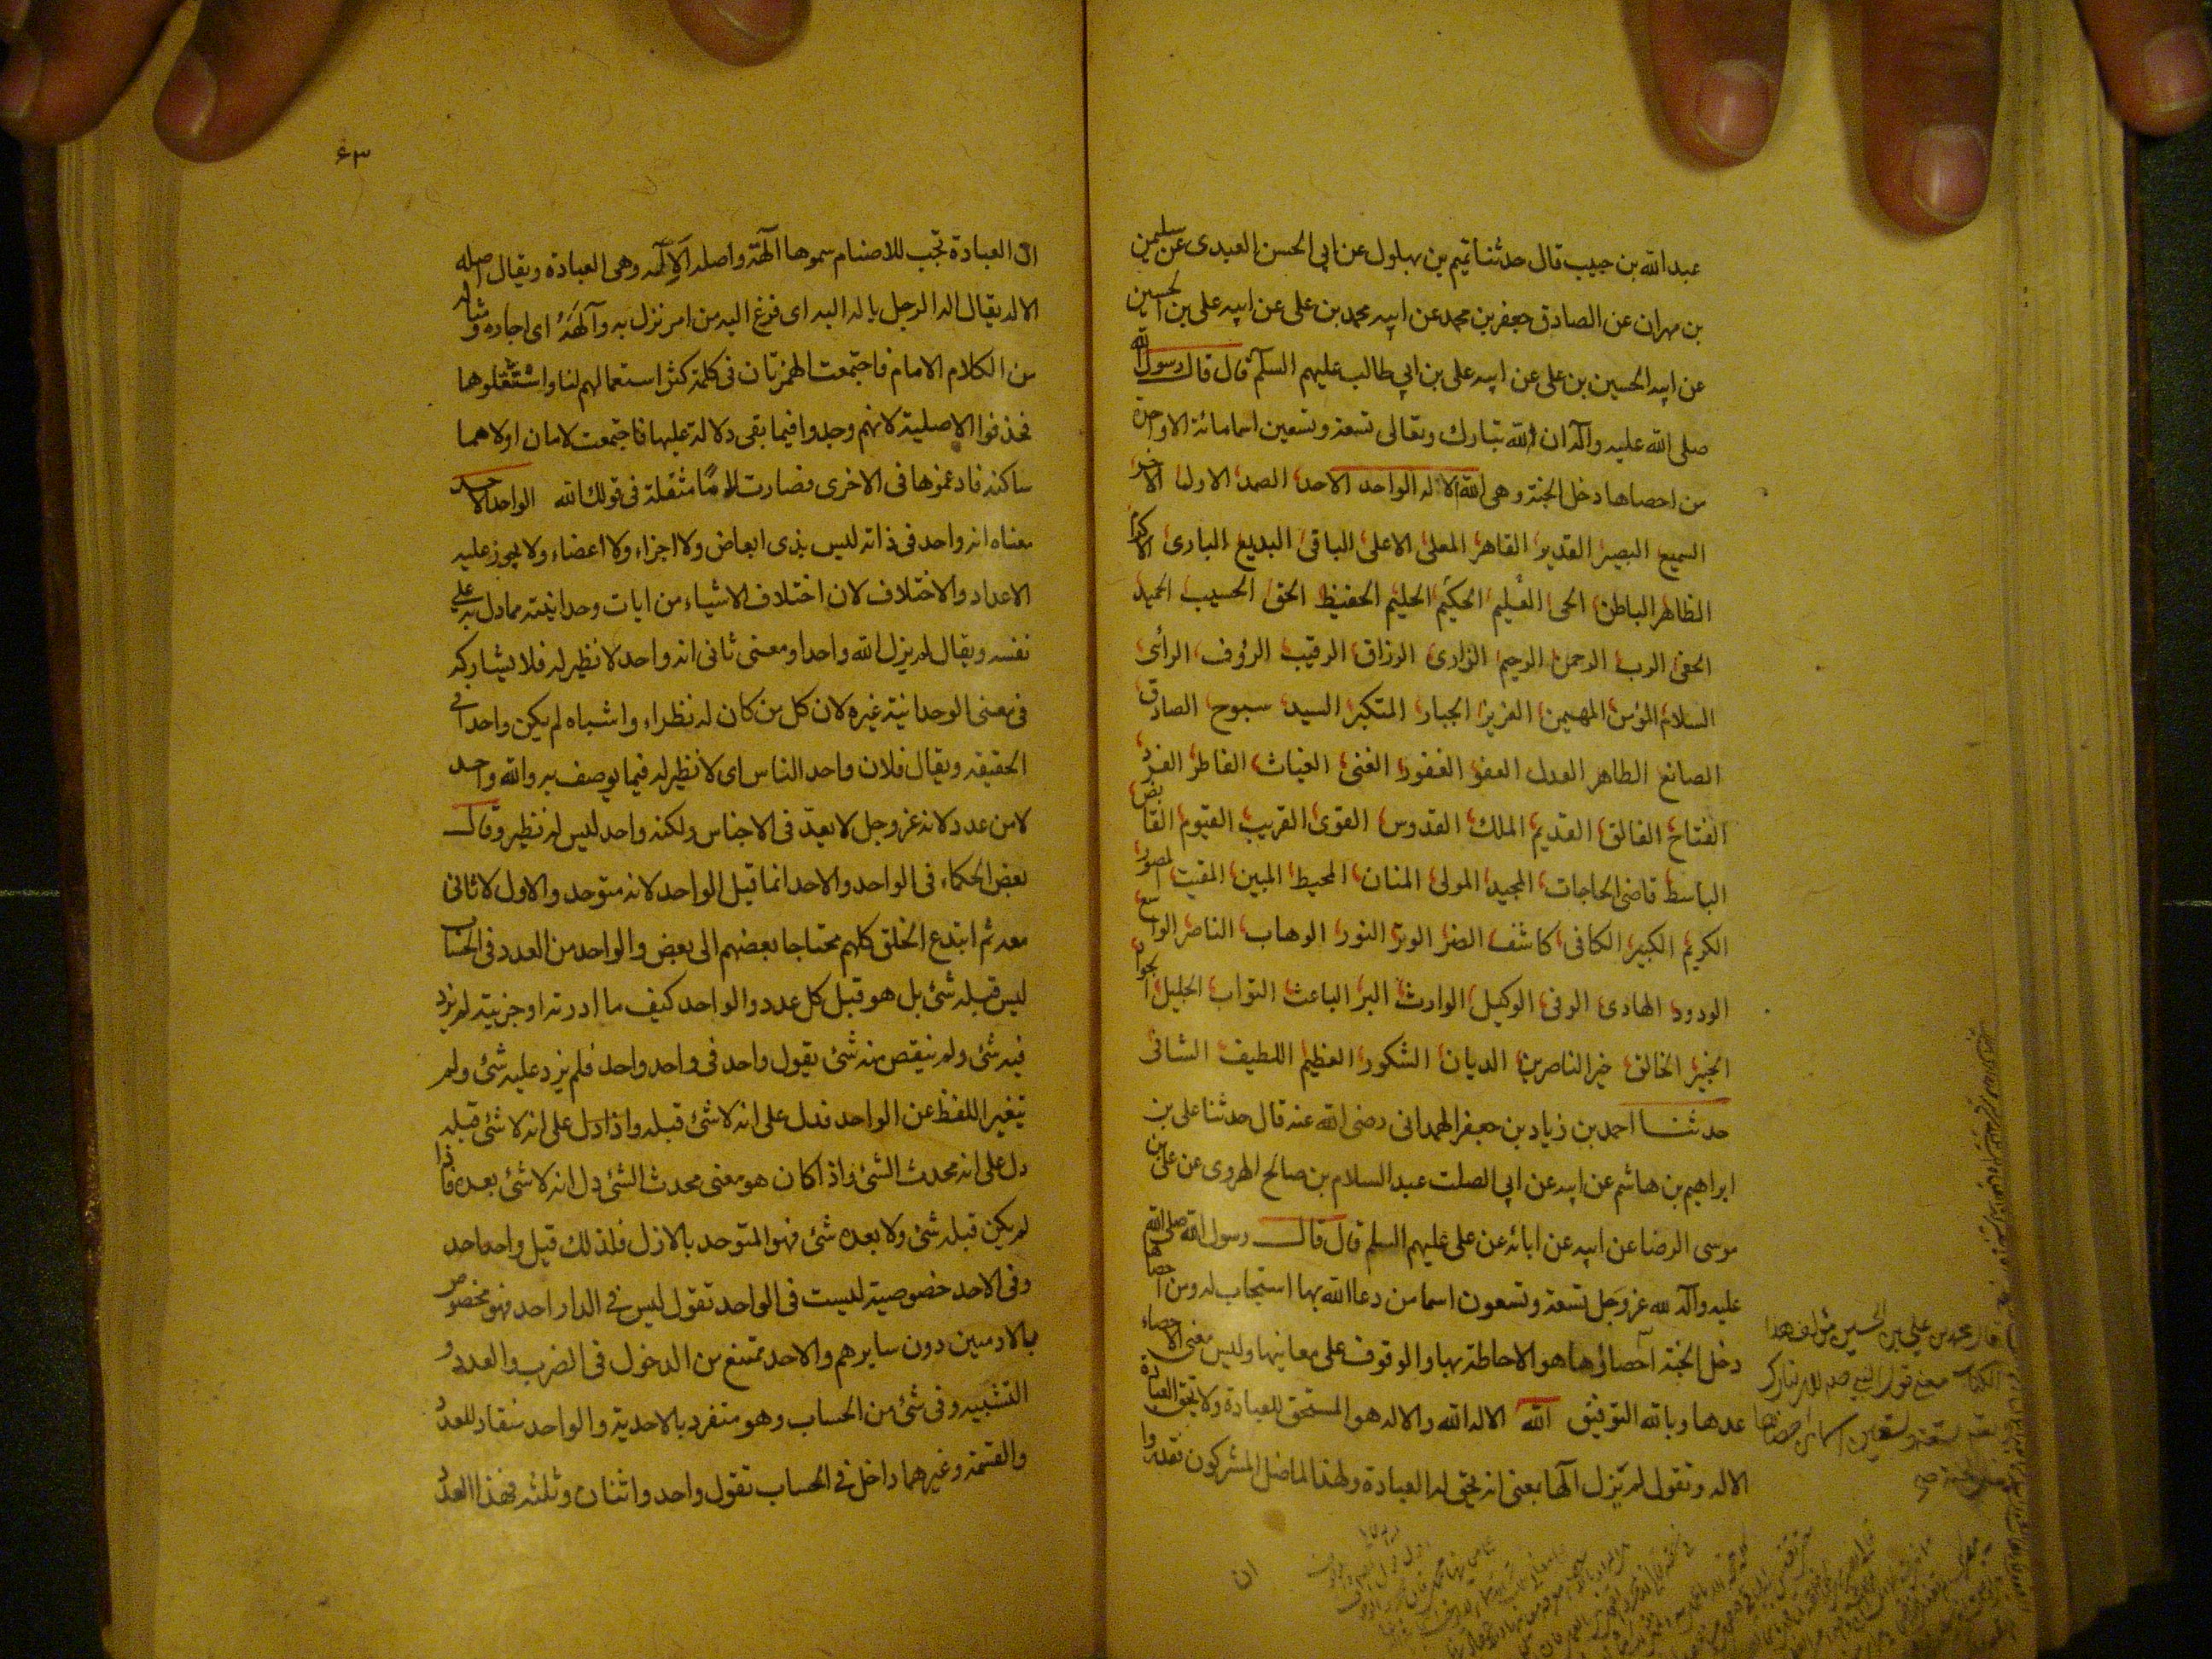 عبد الله بن حبيب قال حدثنا تميم بن بهلول عن ابي الحسن العبدى عن سليمن
بن مهران عن الصادق جعفر بن محمد عن ابيه محمد بن على عن ابيه على بن الحسين
عن ابيه الحسين بن على عن ابيه على بن ابي طالب عليهم السلم قال قال رسول الله
صلى الله عليه وآله ان لله تبارك وتعالى تسعة وتسعين اسما مائة الا واحدة
من احصاها دخل الجنة وهى الله الاله الواحد الاحد الصمد الاول الآخر
السميع البصير القدير القاهر العلى الاعلى الباقى البديع البارئ الاكرم
الظاهر الباطن الحى العليم الحكيم الحليم الحفيظ الحق الحسيب الحميد
الحفى الرب الرحمن الرحيم الذارئ الرزاق الرقيب الرؤف الرأئى
السلام المؤمن المهيمن العزيز الجبار المتكبر السيد سبوح الصادق
الصانع الطاهر العدل العفو الغفور الغنى الغياث الفاطر الفرد
الفتاح الفالق القديم الملك القدوس القوى القريب القيوم القابض
الباسط قاضى الحاجات المجيد المولى المنان المحيط المبين المقيت المصور
الكريم الكبير الكافى كاشف الضر الوتر النور الوهاب الناصر الواسع
الودود الهادى الوفى الوكيل الوارث البر الباعث التواب الجليل الجواد
الخبير الخالق خير الناصرين الديان الشكور العظيم اللطيف الشافى
حدثنا احمد بن زياد بن جعفر الهمدانى رضى الله عنه قال حدثنا على بن
ابراهيم بن هاشم عن ابيه عن ابي الصلت عبد السلام بن صالح الهروى عن على بن
موسى الرضا عن ابيه عن ابائه عن على عليهم السلم قال قال رسول الله صلى الله
عليه وآله لله عز وجل تسعة وتسعون اسما من دعا الله بها استجاب له ومن احصاها
دخل الجنة احصاؤها هو الاحاطة بها والوقوف على معانيها وليس معنى الاحصاء
عدها وبالله التوفيق الله الاله الله والاله هو المستحق للعبادة ولا تحق العبادة
الا له وتقول لم يزل آلها بمعنى انه يحق له العبادة ولهذا لما ضل المشركون فقدروا
قال محمد بن على بن الحسين مؤلف هذا
الكتاب معنى قول النبى صلم لله تبارك
تسعة وتسعين اسما من احصاها
ان
٤٣
ان العبادة تجب للاصنام سموها آلهة واصله الآلهة وهى العبادة ويقال اصله
الاله يقال اله الرجل يأله اليه اى فزع اليه من امر نزل به وآلهه اى اجاره ومثاله
من الكلام الامام فاجتمعت الهمزتان فى كلمة كثر استعمالهم لها واستثقلوها
فحذفوا الاصلية لانهم وجدوا فيما بقى دلالة عليها فاجتمعت لامان اولاهما
ساكنة فادغموها فى الاخرى فصارت لاما مثقلة فى قولك الله الواحد الاحد
معناه انه واحد فى ذاته ليس بذى ابعاض ولا اجزاء ولا اعضاء ولا يجوز عليه
الاعداد والاختلاف لان اختلاف الاشياء من ايات وحدانيته مما دل به على
نفسه ويقال لم يزل الله واحدا ومعنى ثانى انه واحد لا نظير له فلا يشاركه
فى معنى الوحدانية غيره لان كل من كان له نظراء واشباه لم يكن واحدا فى
الحقيقة ويقال فلان واحد الناس اى لا نظير له فيما يوصف به والله واحد
لا من عدد لانه عز وجل لا يعد فى الاجناس ولكنه واحد ليس له نظير وقال
بعض الحكماء فى الواحد والاحد انما قيل الواحد لانه متوحد والاول لا ثانى
معه ثم ابتدع الخلق كلهم محتاجا بعضهم الى بعض والواحد من العدد فى الحساب
ليس قبله شئ بل هو قبل كل عدد والواحد كيف ما ادرته او جزيته لم يزد
فيه شئ ولم ينقص منه شئ يقول واحد فى واحد واحد فلم يزد عليه شئ ولم
يتغير اللفظ عن الواحد فدل على انه لا شئ قبله واذا دل على انه لا شئ قبله
دل على انه محدث الشئ واذا كان هو معنى محدث الشئ دل انه لا شئ بعده فاذا
لم يكن قبله شئ ولا بعده شئ فهو المتوحد بالازل فلذلك قيل واحد احد
وفى الاحد خصوصية ليست فى الواحد تقول ليس فى الدار احد فهو مخصوص
بالادميين دون سايرهم والاحد ممتنع من الدخول فى الضرب والعدد و
التشبيه وفى شئ من الحساب وهو متفرد بالاحدية والواحد منقاد للعدد
والقسمة وغيرهما داخل فى الحساب تقول واحد واثنان وثلثة فهذا العدد